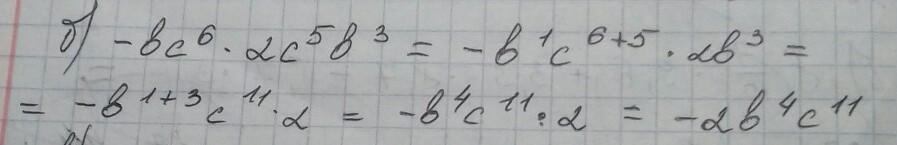 б) -bc⁶ · 2c⁵b³ = -b¹c⁶⁺⁵ · 2b³ =
= -b¹⁺³c¹¹ · 2 = -b⁴c¹¹ · 2 = -2b⁴c¹¹